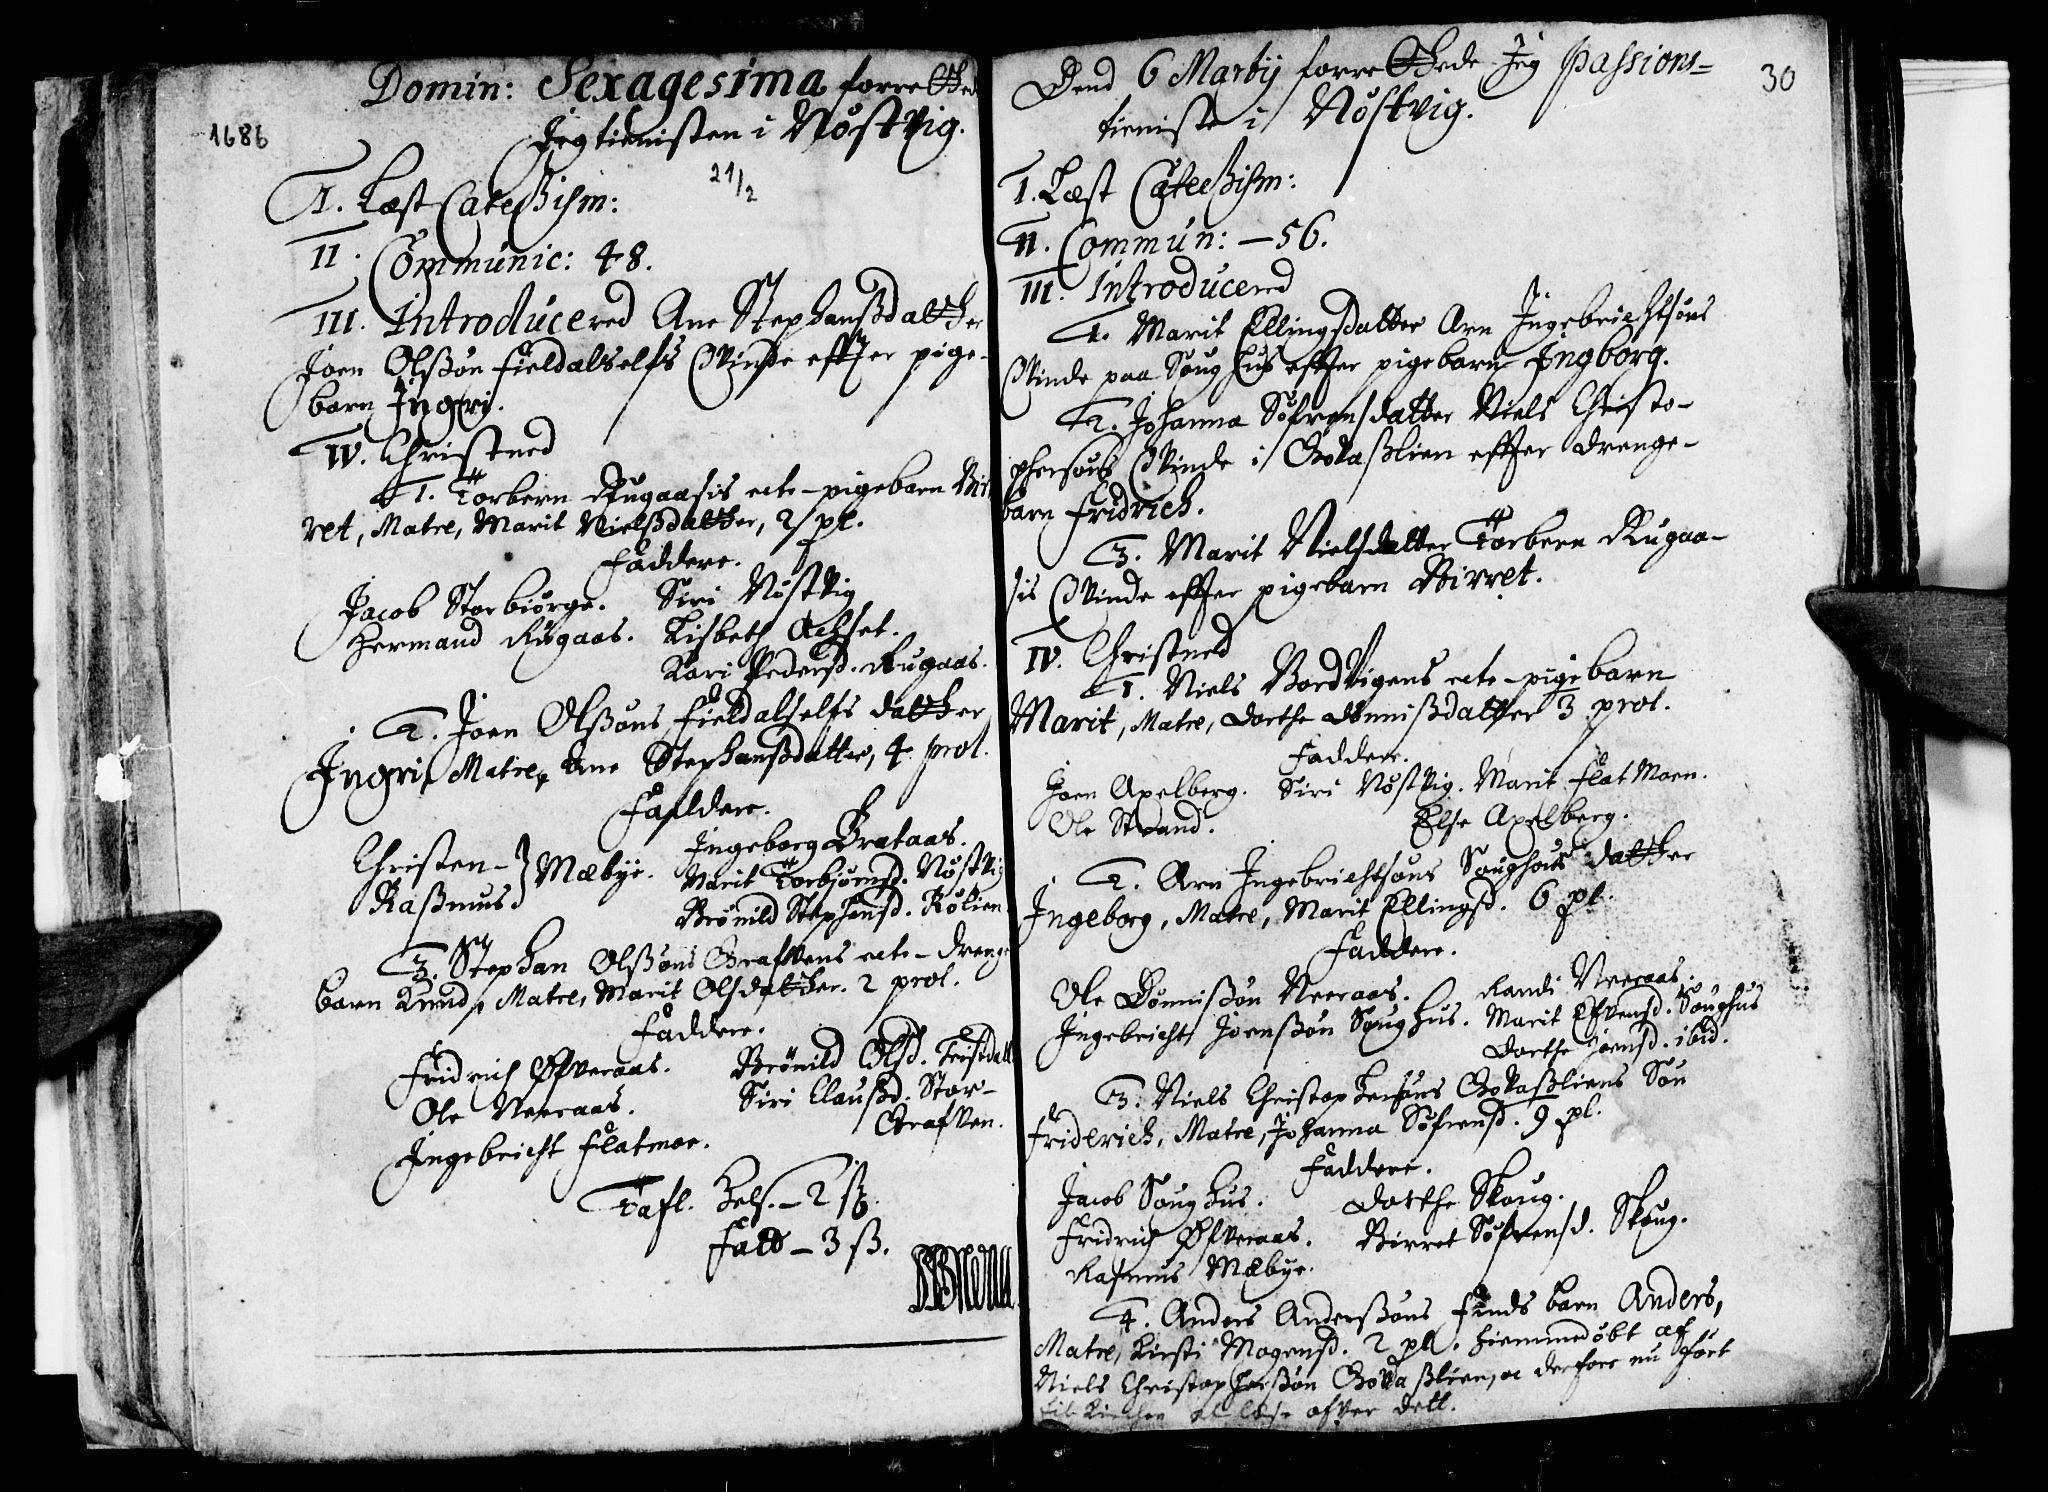 1686
Domin: Sexagesima forretthed
Jeg tienisten i Nøstvig.
21/2
I. Læst Catechism:
II. Communic: 48.
III. Introducered Ane Stephanßdatther
Joen Olßøn Fieldalselfs Qvinde effter pige-
barn Ingri.
IV. Christned
1. Torbern Rugaasis ecte-pigebarn Bir
ret, Matre, Marit Nielßdatther, 2 pl.
Faddere.
Jacob Storbiørge. Siri Nøstvig
Hermand Rugaas. Lisbeth Achset.
Kari Pedersd. Rugaas.
2. Joen Olßøns Fieldalselfs datther
Ingri, Matre, Ane Stephanßdatter, 4. prol.
Faddere.
Christen - } Mæbye. Ingeborg Brataas.
Raßmus } Marit Torbjørnsd. Nøstvig
Brønild Stephensd. Rølien
3. Stephan Olßøns Grafvens ecte-drenge
barn Knud, Matre, Marit Olsdatther. 2 prol.
Faddere.
Fridrich Øfveraas. Brønild Olsd. Tristdall
Ole Neeraas. Siri Claußd. Stor-
Grafven.
Ingebricht Flatmoe.
Tafl. Hels. - 2 ß.
Fatt - 3 ß.
30
Dend 6 Martij forretthede Jeg Passions=
tieniste i Nøstvig.
I. Læst Catechism:
II. Commun: - 56.
III. Introducered
1. Marit Ellingsdatter Arn Ingebrichtsøns
Qvinde paa Soughus effter pigebarn Ingborg.
2. Johanna Søfrensdatter Niels Christo-
phersøns Qvinde i Govaßlien effter drenge-
barn Fridrich.
3. Marit Nielsdatter Torbern Rugaa-
sis Qvinde effter pigebarn Birret.
IV. Christned
1. Niels Bordvigens ecte-pigebarn
Marit, Matre, Dorthe Dønnißdatther 3 prol.
Faddere.
Joen Axelberg. Siri Nøstvig. Marit Flatmoen.
Ole Strand. Else Axelberg.
2. Arn Ingebrichtsøns Soughuus datther
Ingeborg, Matre, Marit Ellingsd. 6 pl.
Faddere.
Ole Dønnißøn Neeraas. Randi Neeraas.
Ingebricht Joenßøn Soughus. Marit Efvensd. Soughus
Dorthe Joensd. ibid.
3. Niels Christophersøns Govaßliens Søn
Friderich, Matre, Johanna Søfrensd. 9 pl.
Faddere.
Jacob Soughus. Dorthe Skoug.
Fridrich Øfveraas. Birret Søfrensd. Skoug.
Rasmus Mæbye.
4. Anders Anderßøns Finds barn Anders,
Matre, Kirsti Mogensd. 2 pl. Hiemmedøbt af
Niels Christopherßøn Govaßlien, oc derfore nu ført
til Kirchen at læse ofver dett.